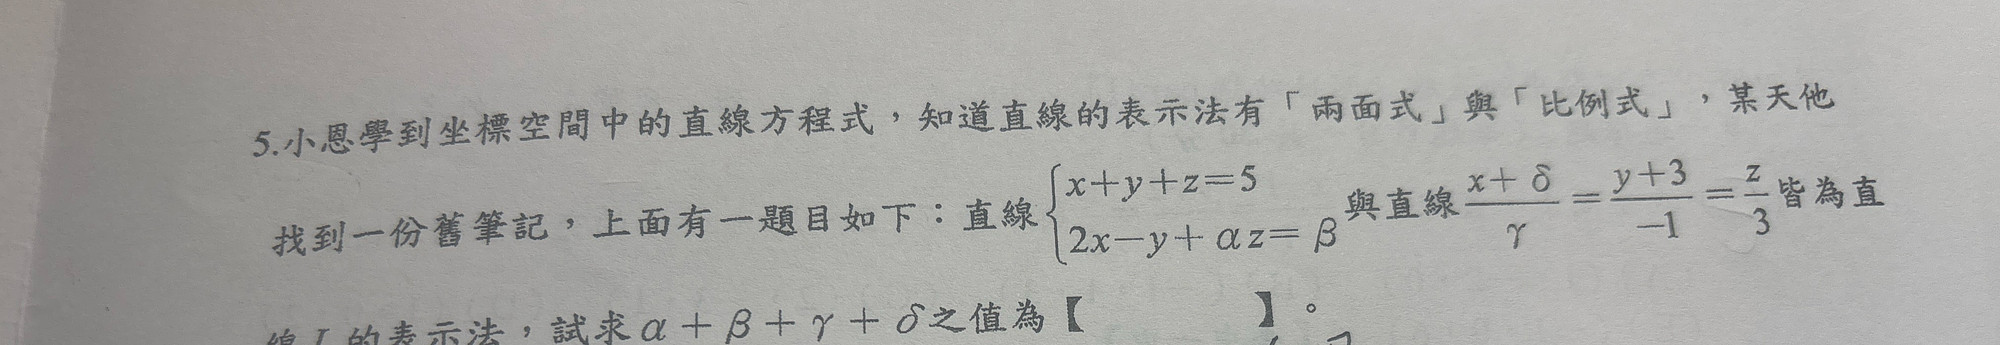 5.小恩學到坐標空間中的直線方程式，知道直線的表示法有「兩面式」與「比例式」，某天他
找到一份舊筆記，上面有一題目如下：直線{x+y+z=5 2x−y+αz=β 與直線 (x+δ)/γ = (y+3)/−1 = z/3 皆為直
線L的表示法，試求α+β+γ+δ之值為【　　　】。